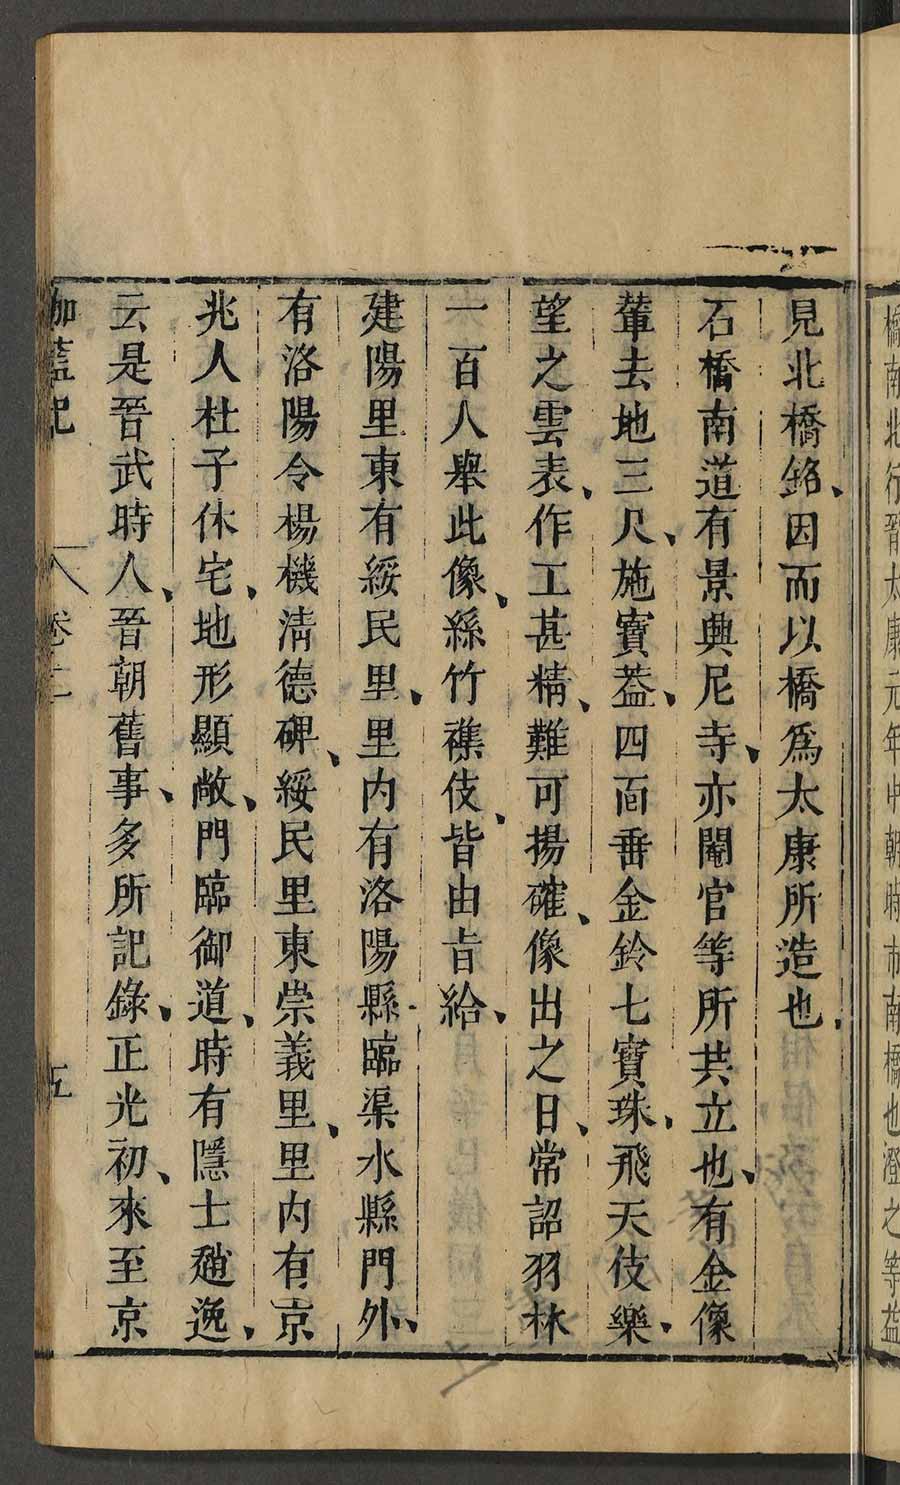 橋南北行晉太康元年中朝時市南橋也澄之等蓋
見北橋銘、因而以橋爲太康所造也、
石橋南道有景興尼寺、亦閹官等所共立也、有金像
輦去地三尺、施寶蓋、四面垂金鈴七寶珠、飛天伎樂、
望之雲表、作工甚精、難可揚確、像出之日、常詔羽林
一百人舉此像、絲竹襍伎、皆由㫖給、
建陽里東有綏民里、里内有洛陽縣臨渠水縣門外、
有洛陽令楊機清德碑、綏民里東崇義里、里内有京
兆人杜子休宅、地形顯敞、門臨御道、時有隱士趙逸、
云是晉武時人、晉朝舊事、多所記錄、正光初、來至京
伽藍記 卷二 五